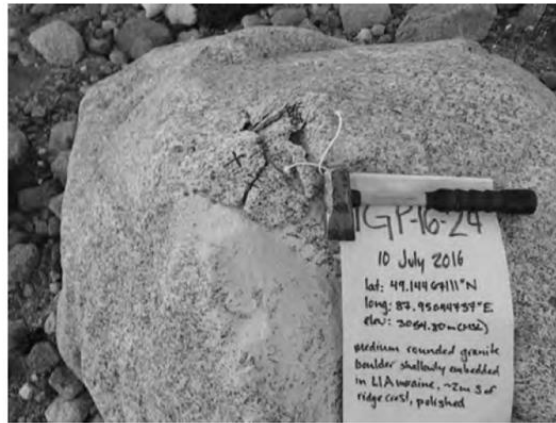 TGP-16-24
10 July 2016
lat: 49.1446711°N
long: 87.95094757°E
elev: 3054.80m(HAE)
medium rounded granite
boulder shallowly embedded
in LIA moraine, ~2m S of
ridge crest, polished